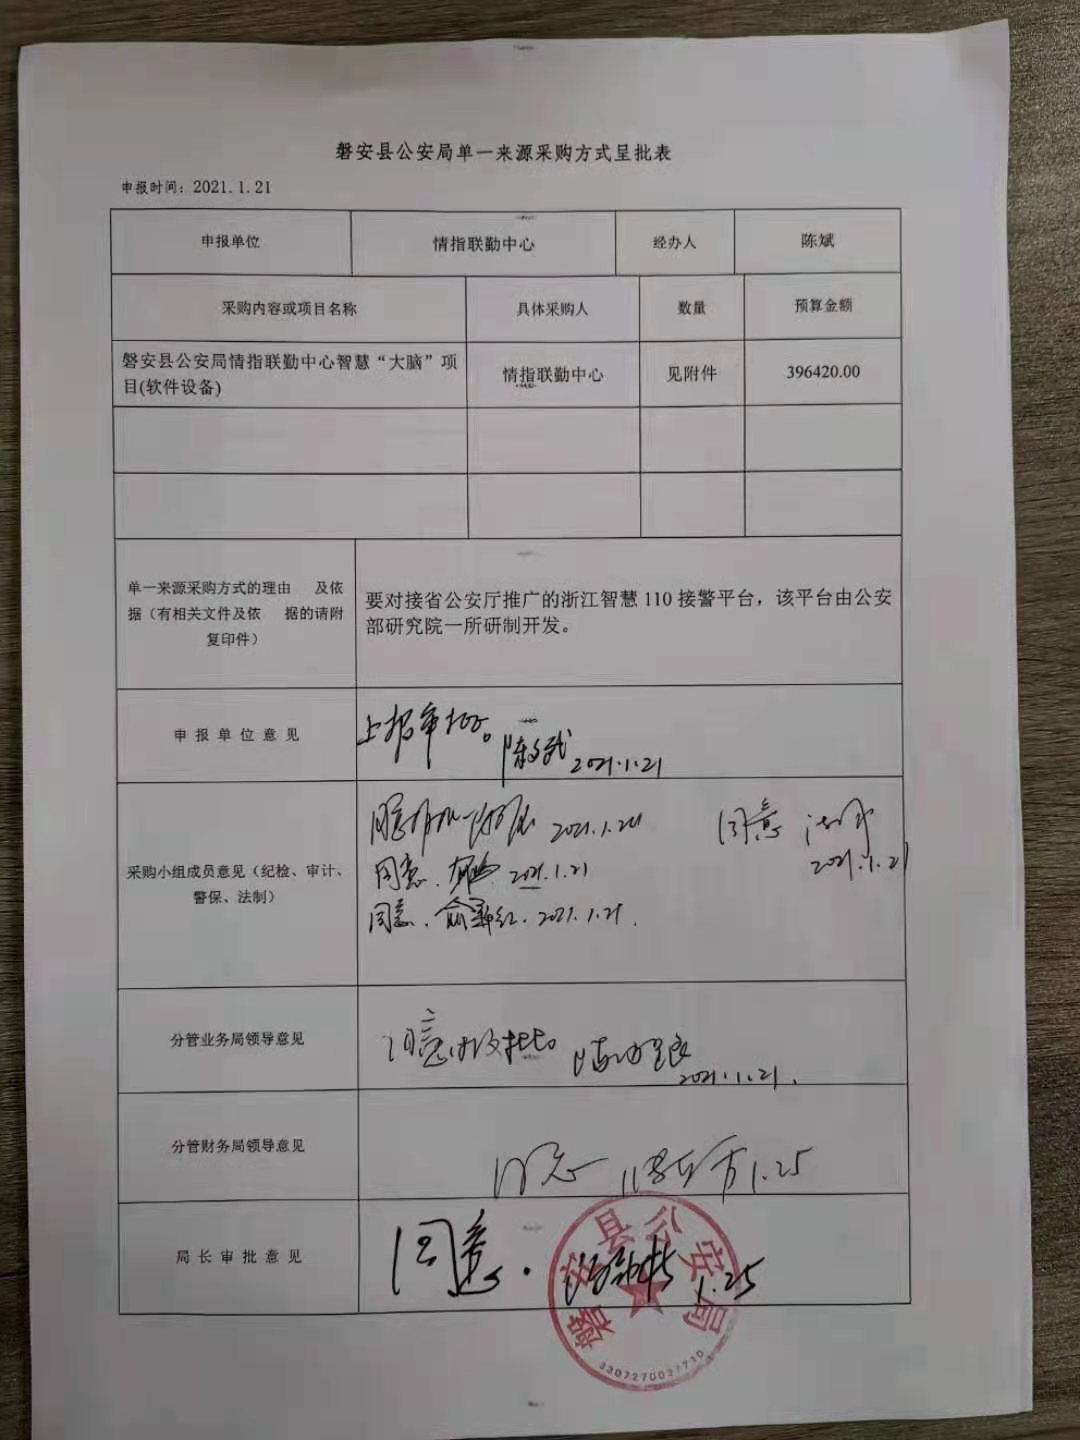 磐安县公安局单一来源采购方式呈批表
申报时间：2021.1.21
申报单位 情指联勤中心 经办人 陈斌
采购内容或项目名称 具体采购人 数量 预算金额
磐安县公安局情指联勤中心智慧“大脑”项
目(软件设备) 情指联勤中心 见附件 396420.00
单一来源采购方式的理由 及依
据（有相关文件及依 据的请附
复印件）
要对接省公安厅推广的浙江智慧 110 接警平台，该平台由公安
部研究院一所研制开发。
申报单位意见
上报审批。
2021.1.21
采购小组成员意见（纪检、审计、
警保、法制）
2021.1.21
同意
2021.1.21
同意. 2021.1.21
同意. 俞新红. 2021.1.21.
分管业务局领导意见
同意报批
2021.1.21.
分管财务局领导意见
同意 1.25
局长审批意见
同意. 1.25
磐安县公安局